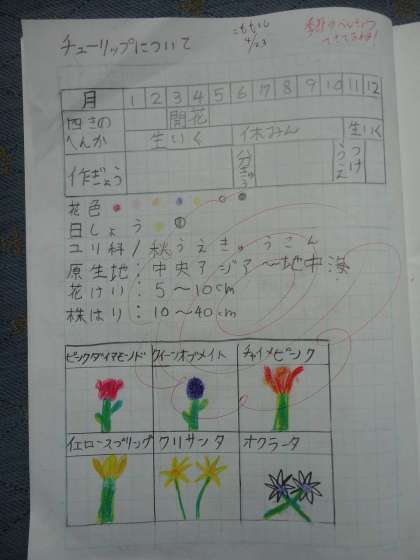 チューリップについて
4/23
月 1 2 3 4 5 6 7 8 9 10 11 12
四きのへんか 開花 生いく 休みん 生いく
作ぎょう 分きゅう うえつけ
花色
日しょう
ユリ科/秋うえきゅうこん
原生地:中央アジア〜地中海
花けい:5〜10cm
株はり:10〜40cm
ピンクダイヤモンド クイーンオブナイト チャイナピンク
イエロースプリング クリサンタ オクラータ